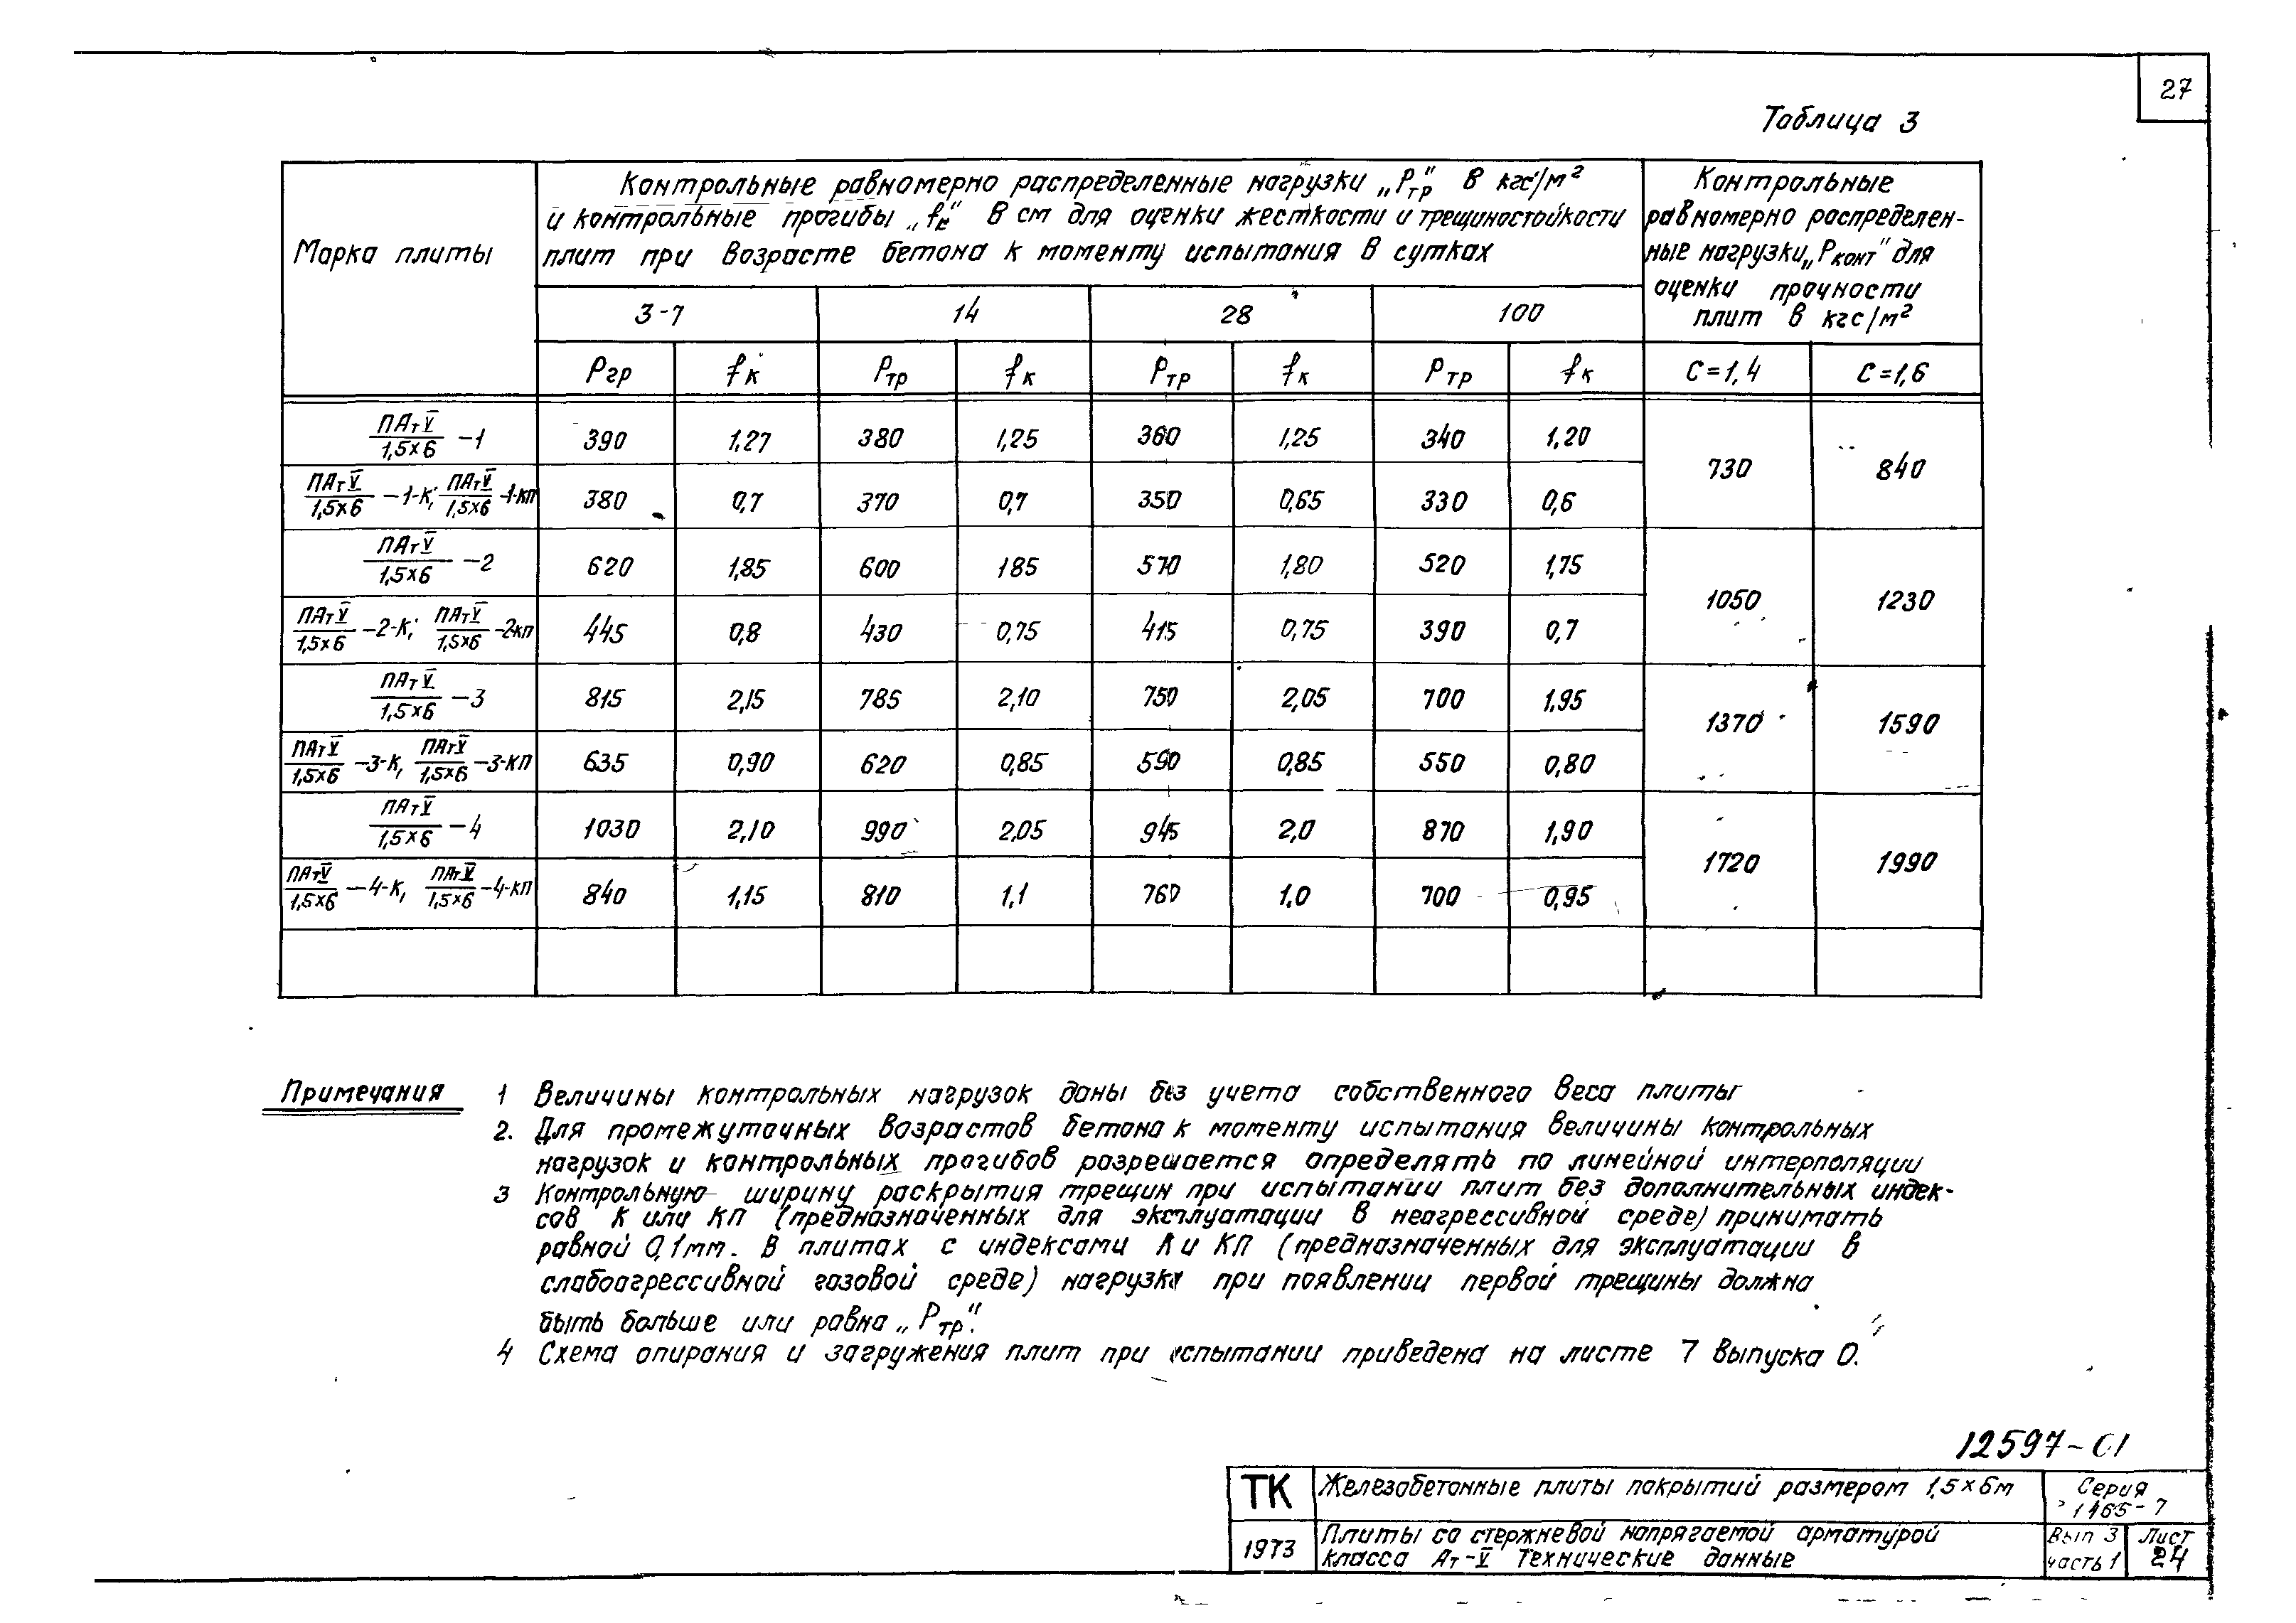 27
Таблица 3
Марка плиты
Контрольные равномерно распределенные нагрузки „Pтр" в кгс/м²
и контрольные прогибы „fк" в см для оценки жесткости и трещиностойкости
плит при возрасте бетона к моменту испытания в сутках
Контрольные
равномерно распределен-
ные нагрузки „Pконт" для
оценки прочности
плит в кгс/м²
3-7 14 28 100
Pгр fк Pтр fк Pтр fк Pтр fк C=1,4 C=1,6
ПАтV/1,5×6 -1 390 1,27 380 1,25 360 1,25 340 1,20 730 840
ПАтV/1,5×6 -1-К; ПАтV/1,5×6 -1-КП 380 0,7 370 0,7 350 0,65 330 0,6
ПАтV/1,5×6 -2 620 1,85 600 185 570 1,80 520 1,75 1050 1230
ПАтV/1,5×6 -2-К; ПАтV/1,5×6 -2КП 445 0,8 430 0,75 415 0,75 390 0,7
ПАтV/1,5×6 -3 815 2,15 785 2,10 750 2,05 700 1,95 1370 1590
ПАтV/1,5×6 -3-К, ПАтV/1,5×6 -3-КП 635 0,90 620 0,85 590 0,85 550 0,80
ПАтV/1,5×6 -4 1030 2,10 990 2,05 945 2,0 870 1,90 1720 1990
ПАтV/1,5×6 -4-К, ПАтV/1,5×6 -4-КП 840 1,15 810 1,1 760 1,0 700 0,95
Примечания 1 Величины контрольных нагрузок даны без учета собственного веса плиты
2. Для промежуточных возрастов бетона к моменту испытания величины контрольных
нагрузок и контрольных прогибов разрешается определять по линейной интерполяции
3 Контрольную ширину раскрытия трещин при испытании плит без дополнительных индек-
сов К или КП (предназначенных для эксплуатации в неагрессивной среде) принимать
равной 0,1мм. В плитах с индексами К и КП (предназначенных для эксплуатации в
слабоагрессивной газовой среде) нагрузка при появлении первой трещины должна
быть больше или равна „Pтр".
4 Схема опирания и загружения плит при испытании приведена на листе 7 выпуска 0.
12597-01
ТК Железобетонные плиты покрытий размером 1,5×6м Серия
1465-7
1973 Плиты со стержневой напрягаемой арматурой
класса Ат-V Технические данные
Вып 3 Лист
часть 1 24